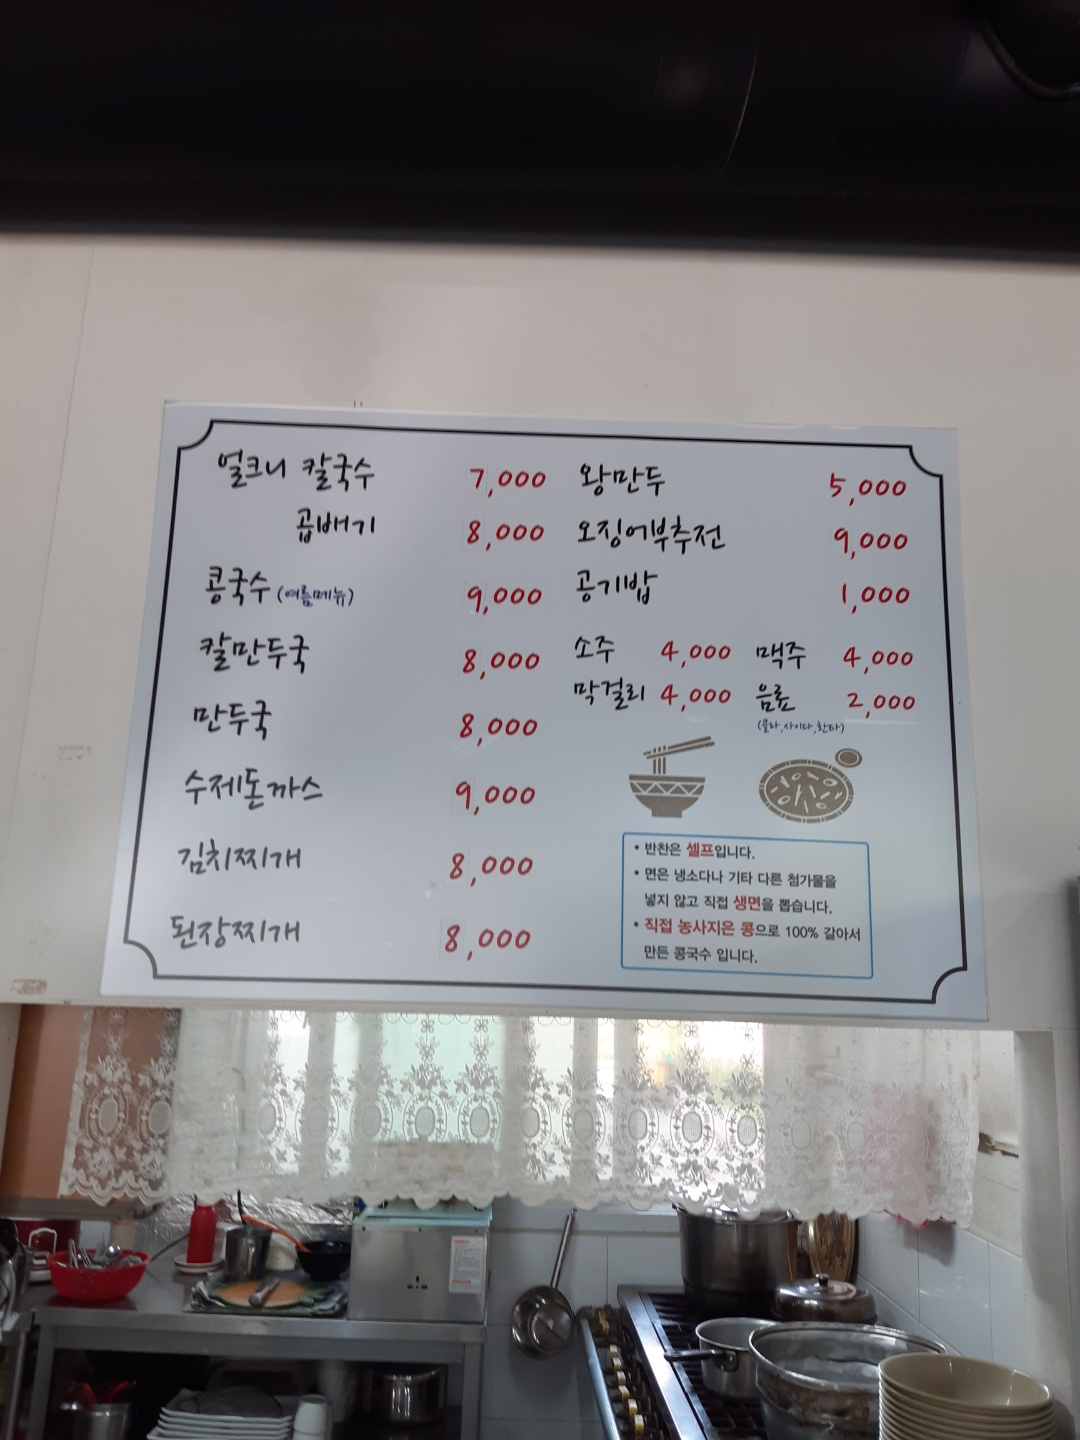 얼크니 칼국수 7,000
곱배기 8,000
콩국수 (여름메뉴) 9,000
칼만두국 8,000
만두국 8,000
수제돈까스 9,000
김치찌개 8,000
된장찌개 8,000
왕만두 5,000
오징어부추전 9,000
공기밥 1,000
소주 4,000 맥주 4,000
막걸리 4,000 음료 2,000
(콜라,사이다,환타)
• 반찬은 셀프입니다.
• 면은 냉소다나 기타 다른 첨가물을
넣지 않고 직접 생면을 뽑습니다.
• 직접 농사지은 콩으로 100% 갈아서
만든 콩국수 입니다.